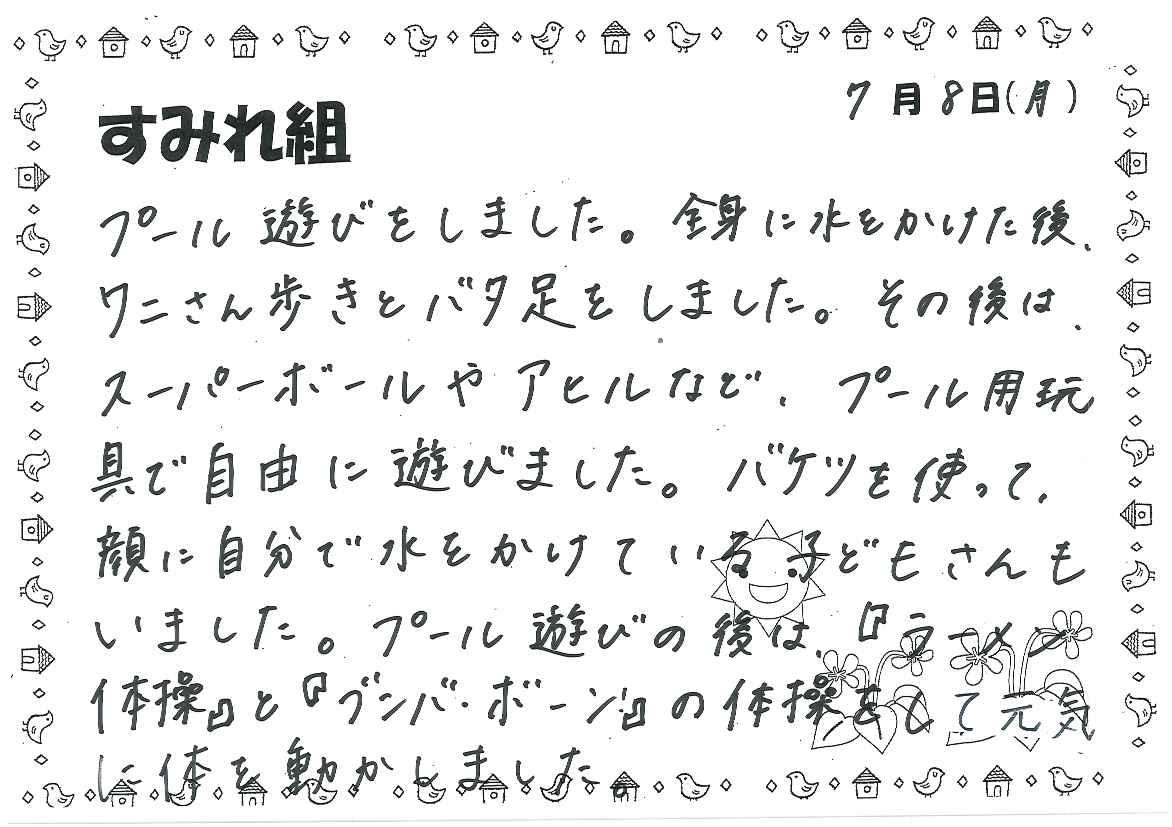 7月8日(月)
すみれ組
プール遊びをしました。全身に水をかけた後、
ワニさん歩きとバタ足をしました。その後は、
スーパーボールやアヒルなど、プール用玩
具で自由に遊びました。バケツを使って、
顔に自分で水をかけている子どもさんも
いました。プール遊びの後は、『ラーメン
体操』と『ブンバ・ボーン!』の体操をして元気
に体を動かしました。